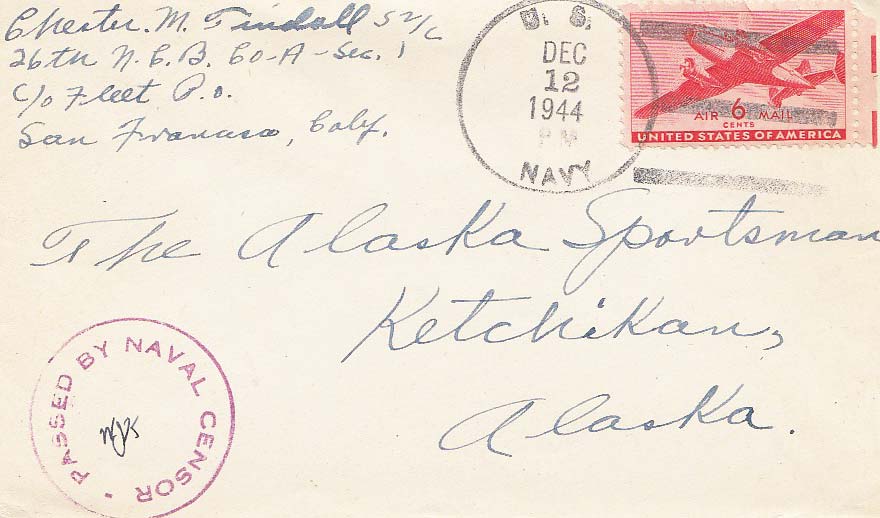 Chester. M. Tindall S2/c
26th N.C.B. Co-A-Sec. 1
C/o Fleet P.O.
San Francisco, Calif.
U. S.
DEC
12
1944
PM
NAVY
AIR 6 MAIL
CENTS
UNITED STATES OF AMERICA
The Alaska Sportsman
Ketchikan,
Alaska.
PASSED BY NAVAL CENSOR